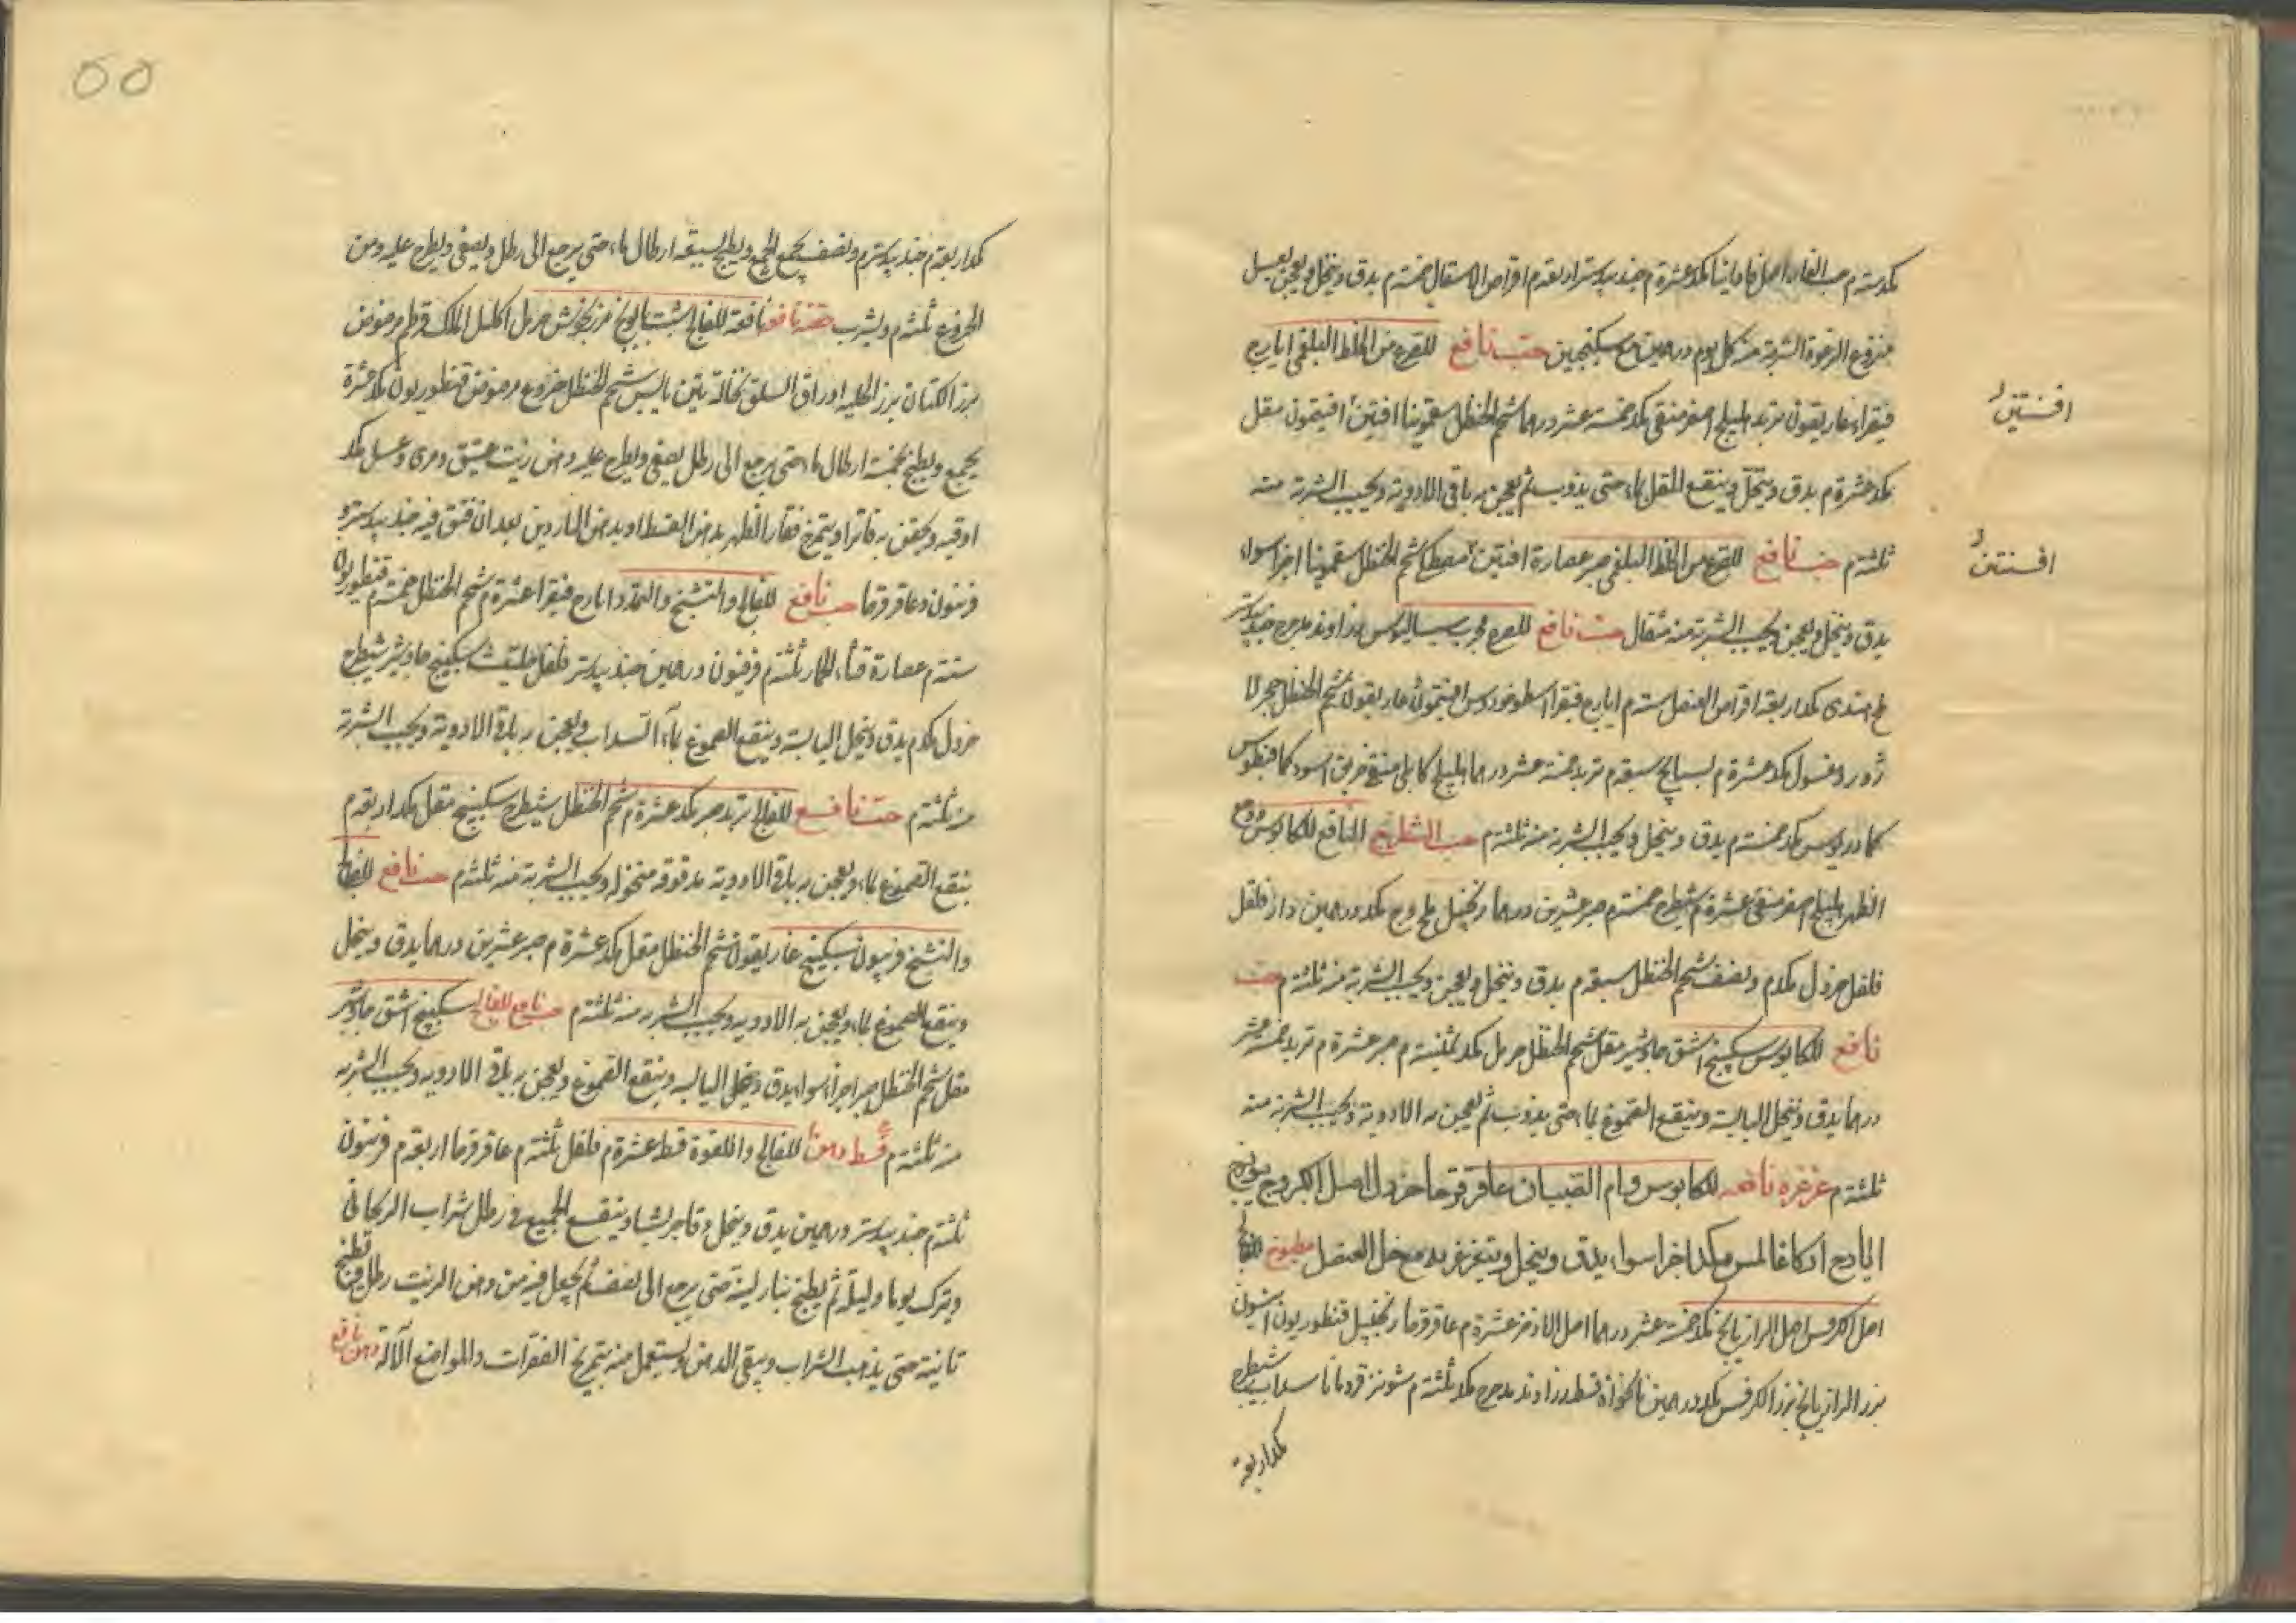 مكد ستة م حب الغار اصل فاوانيا مكد عشرة م جندبيدستر اربعة م اقراص الاسقال خمسة م يدق وينخل ويعجن بعسل
منزوع الرغوة الشربة منه كل يوم درهمين مع سكنجبين حب نافع للصرع من الخلط البلغمي ايارج
فيقرا غاريقون تربد اهليلج اصفر منقى مكد خمسة عشر درهما شحم الحنظل سقمونيا افتين افتيمون مقل
مكد عشرة م يدق وينخل وينقع المقل بماء حتى يذوب ثم يعجن به باقي الادوية ويحبب الشربة منه
ثلثة م حب نافع للصرع من الخلط البلغمي صبر عصارة افتين مصطكي شحم الحنظل سقمونيا اجزا سواء
يدق وينخل ويعجن ويحبب الشربة منه مثقال حب نافع للصرع مجرب سساليوس زراوند مدحرج جندبيدستر
ملح هندى مكد اربعة اقراص العنصل ستة م ايارج فيقرا اسطوخودوس افتيمون غاريقون شحم الحنظل حجر لا
زورد مغسول مكد عشرة م بسبايج سبعة م تربد خمسة عشر درهما اهليلج كابلي منقى خربق اسود كمافيطوس
كمادريوس مكد خمسة م يدق وينخل ويحبب الشربة منه ثلثة م حب الشيطرج النافع للكابوس ووجع
الظهر اهليلج اصفر منقى عشرة م شيطرج خمسة م صبر عشرين درهما زنجبيل ملح وج مكد درهمين دار فلفل
فلفل خردل مكد م ونصف شحم الحنظل سبعة م يدق وينخل ويعجن ويحبب الشربة منه ثلثة م حب
نافع للكابوس سكبينج اشق جاوشير مقل شحم الحنظل حرمل مكد ثمنية م صبر عشرة م تربد خمسة عشر
درهما يدق وينخل اليابسة وينقع الصموغ بماء حتى يذوب ثم يعجن به الادوية ويحبب الشربة منه
ثلثة م غرغره نافعه للكابوس وام الصبيان عاقرقرحا خردل اصل الكبر وج مويزج
ايارج اركاغانيس مكد اجزا سواء يدق وينخل ويتغرغر به مع خل العنصل مطبوخ للفالج
اصل الكرفس اصل الرازيانج مكد خمسة عشر درهما اصل الاذخر عشرة م عاقرقرحا زنجبيل قنطوريون انيسون
بزر الرازيانج بزر الكرفس مكد درهمين نانخواة قسط زراوند مدحرج مكد ثلثة م شونيز قردمانا سداب شيطرج
مكد اربعة
افسنتين
افسنتين
55
مكد اربعة م جندبيدستر م ونصف يجمع الجميع ويطبخ بسبعة ارطال ماء حتى يرجع الى رطل ويصفى ويطرح عليه دهن
الخروع ثلثة م ويشرب حقنه نافعه نافعة للفالج شبت بابونج مرزنجوش حرمل اكليل الملك قرطم مرضوض
بزر الكتان بزر الحلبه اوراق السلق نخالة تين يابس شحم الحنظل خروع مرضوض قنطوريون مكد عشرة
يجمع ويطبخ بخمسة ارطال ماء حتى يرجع الى رطل يصفى ويطرح عليه دهن زيت عتيق ومرى وعسل مكد
اوقيه ويحقن به فاترا ويتمرخ فقار الظهر بدهن القسط او بدهن الناردين بعد ان فتق فيه جندبيدستر و
فربيون وعاقرقرحا حب نافع للفالج والتشنج والتمدد ايارج فيقرا عشرة م شحم الحنظل خمسة م قنطوريون
ستة م عصارة قثاء الحمار ثلثة م فربيون درهمين جندبيدستر فلفل حلتيت سكبينج جاوشير شيطرج
خردل مكد م يدق وينخل اليابسة وينقع الصموغ بماء السداب ويعجن به باقي الادوية ويحبب الشربة
منه ثلثة م حب نافع للفالج تربد صبر مكد عشرة م شحم الحنظل شيطرج سكبينج مقل مكد اربعة م
ينقع الصموغ بماء ويعجن به باقي الادوية مدقوقه منخوله ويحبب الشربة منه ثلثة م حب نافع للفالج
والتشنج فربيون سكبينج غاريقون شحم الحنظل مقل مكد عشرة م صبر عشرين درهما يدق وينخل
وينقع الصموغ بماء ويعجن به الادويه ويحبب الشربه منه ثلثة م حب نافع للفالج سكبينج اشق جاوشير
مقل شحم الحنظل صبر اجزاء سوا يدق وينخل اليابسه وينقع الصموغ ويعجن به باقي الادويه ويحبب الشربه
منه ثلثة م قسط دهن للفالج واللقوة قسط عشرة م فلفل ثلثة م عاقرقرحا اربعة م فربيون
ثلثة م جندبيدستر درهمين يدق وينخل وينقع الجميع في رطل شراب الريحاني
ويترك يوما وليلة ثم يطبخ بنار لينة حتى يرجع الى نصف ثم يجعل فيه من دهن الزيت رطل ويطبخ
ثانية حتى يذهب الشراب ويبقى الدهن ويستعمل منه بتمريخ الفقرات والمواضع الآلة دهن نافع